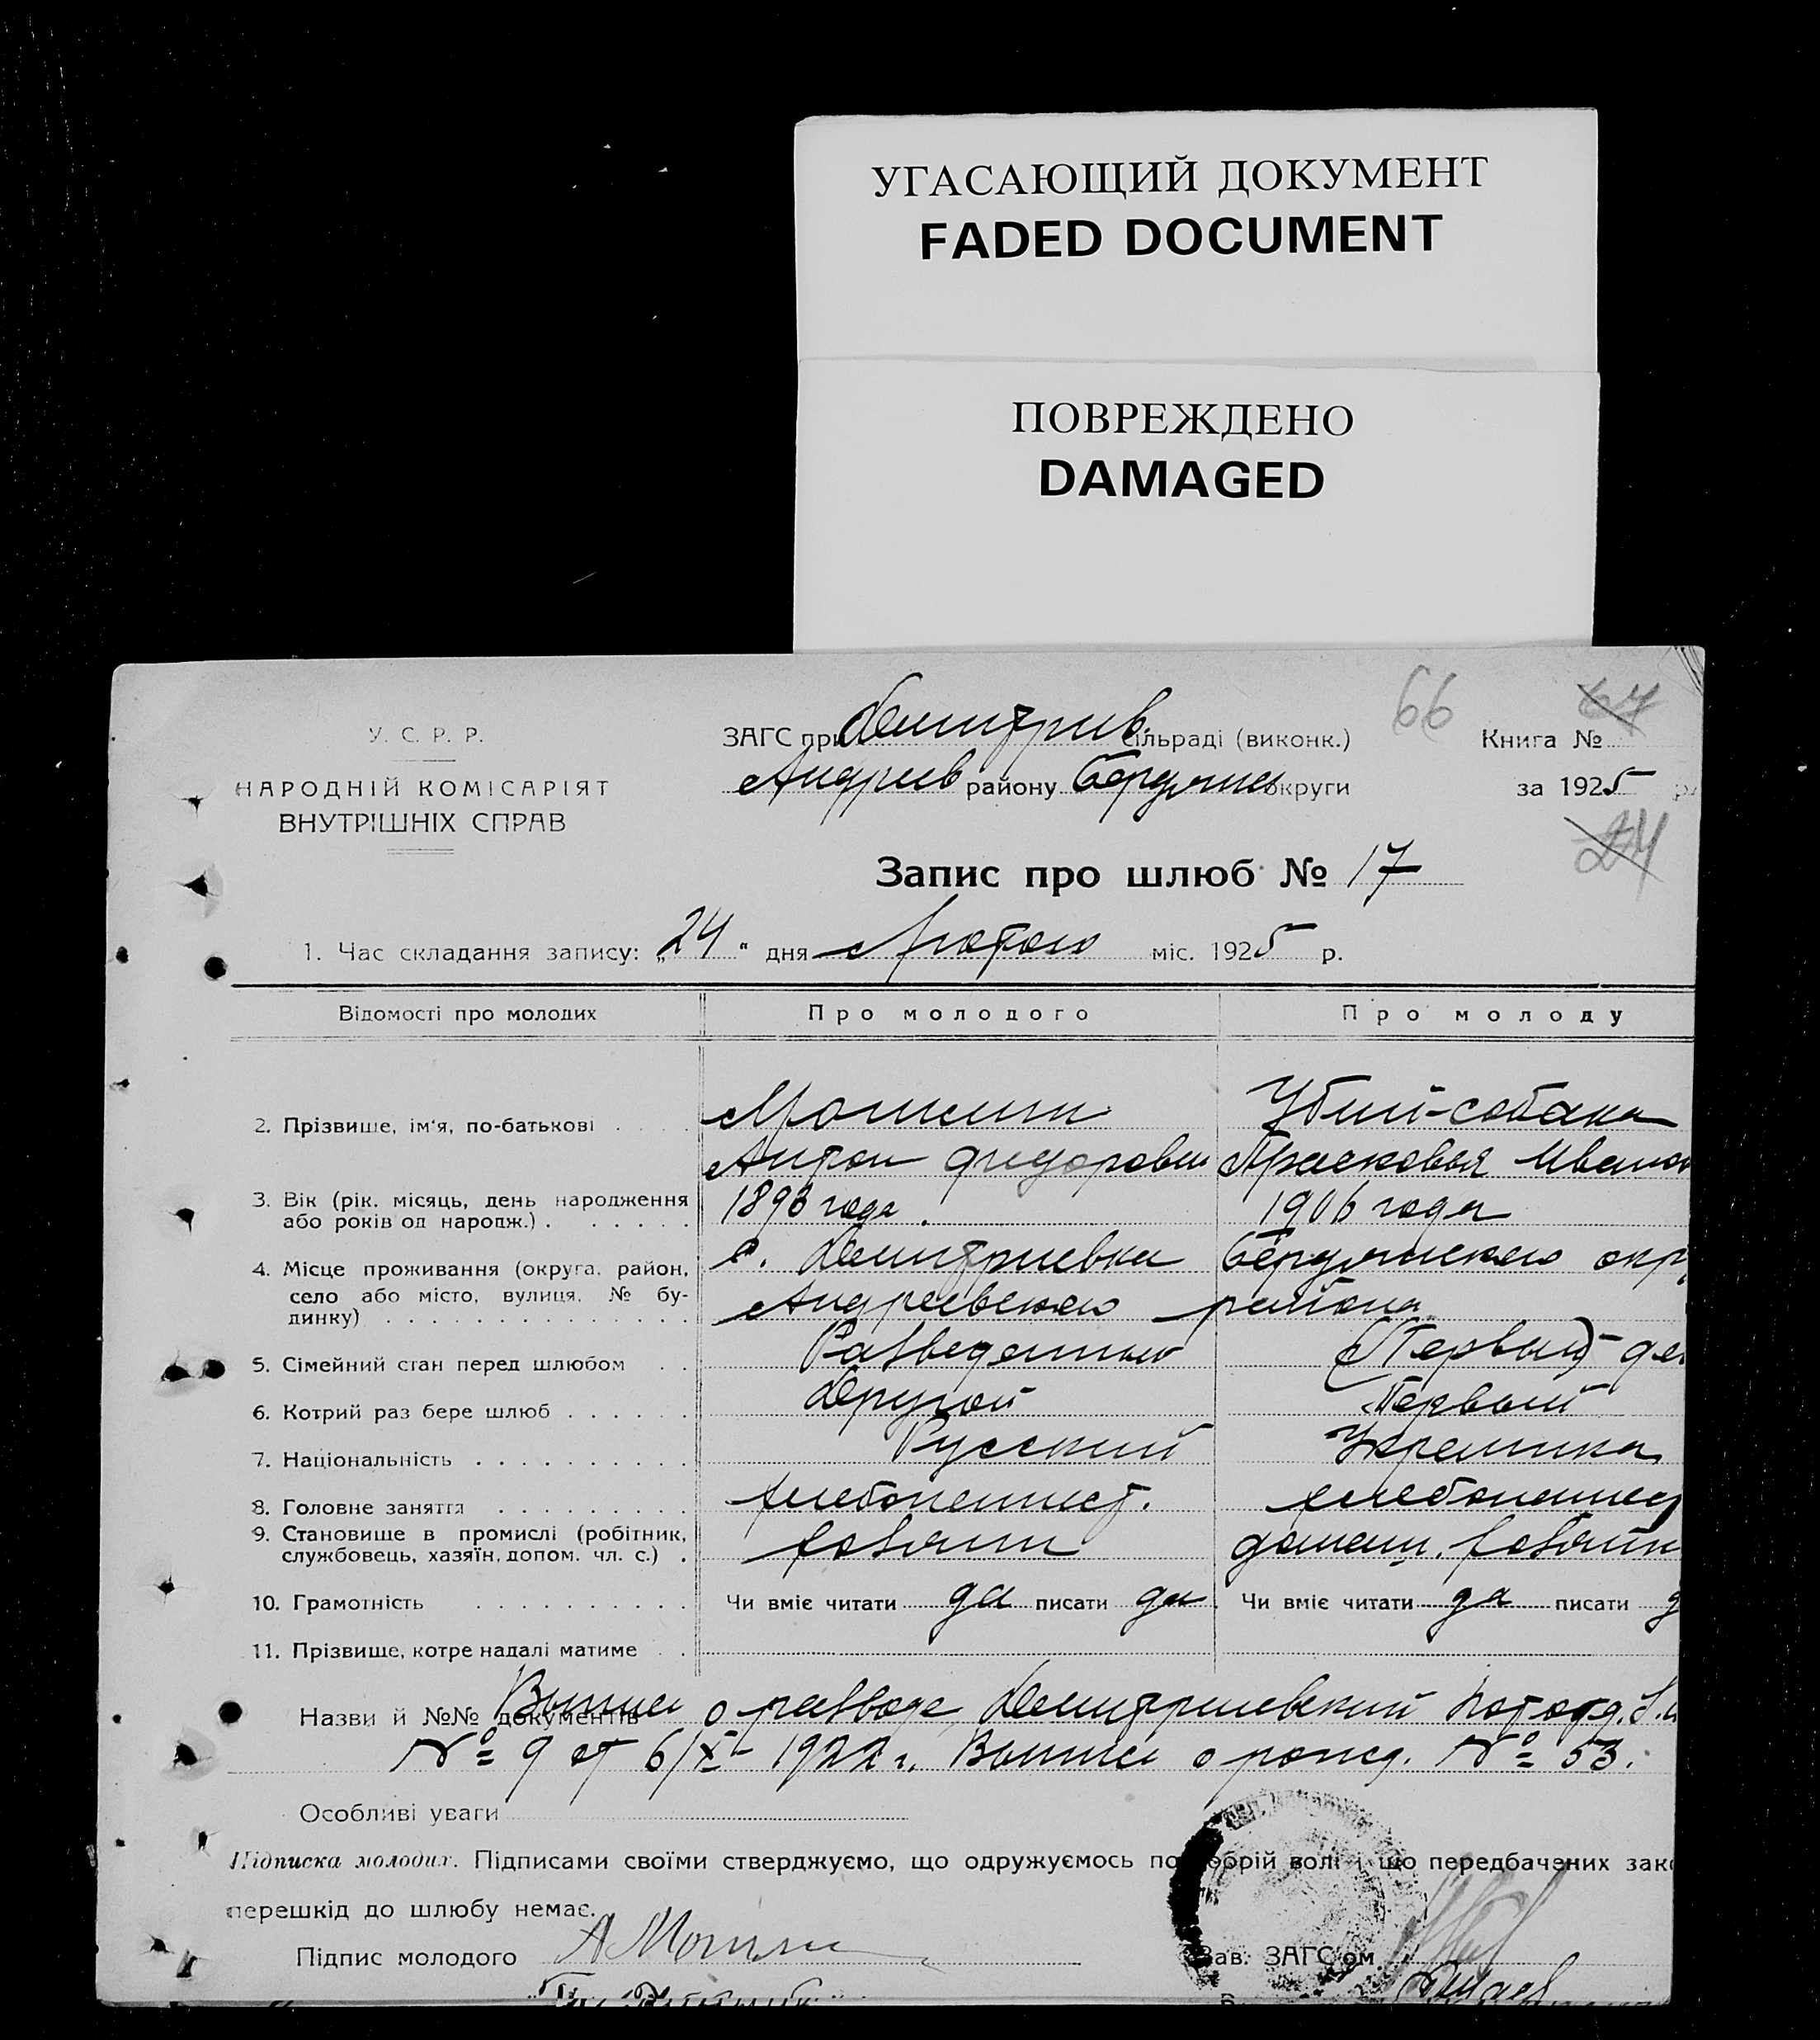 УГАСАЮЩИЙ ДОКУМЕНТ
FADED DOCUMENT
ПОВРЕЖДЕНО
DAMAGED
У. С. Р. Р.
НАРОДНІЙ КОМІСАРІЯТ
ВНУТРІШНІХ СПРАВ
ЗАГС при Дмитрив. сільраді (виконк.)
Андреев району Бердянс округи
66
67
Книга №
за 1925 р.
24
Запис про шлюб № 17
1. Час складання запису: „24“ дня Лютого міс. 1925 р.
Відомості про молодих Про молодого Про молоду
2. Прізвище, ім'я, по-батькові Мошкин Убий-собака
Антон Федорович Прасковья Иванов
3. Вік (рік, місяць, день народження або років од народж.) 1893 года. 1906 года
4. Місце проживання (округа, район, село або місто, вулиця, № будинку) с. Дмитриевка Бердянского окр
Андреевского района
5. Сімейний стан перед шлюбом Разведенный (Первый) де
6. Котрий раз бере шлюб Другой Первый
7. Національність Русский Украинка
8. Головне заняття хлебопашест. хлебопашест
9. Становище в промислі (робітник, службовець, хазяїн, допом. чл. с.) хозяин домаш. хозяйк
10. Грамотність Чи вміє читати да писати да Чи вміє читати да писати д
11. Прізвище, котре надалі матиме
Назви й №№ документів Выпись о разводе Дмитриевский
№ 9 от 6/XI - 1922 г. Выпись о рожд. № 53.
Особливі уваги
Підписка молодих. Підписами своїми стверджуємо, що одружуємось по добрій волі і що передбачених зако
перешкід до шлюбу немає.
Підпис молодого А Мошкин Зав. ЗАГС'ом